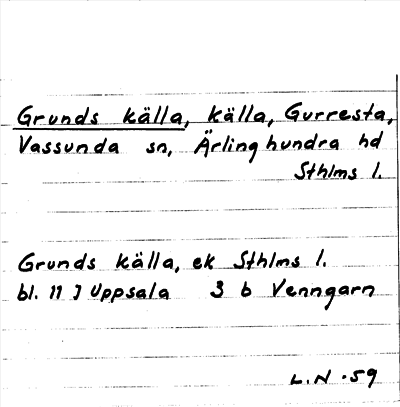 Grunds källa, källa, Gurresta,
Vassunda sn, Ärlinghundra hd
Sthlms l.
Grunds källa, ek Sthlms l.
bl. 11 J Uppsala 3 b Venngarn
L.N. 59